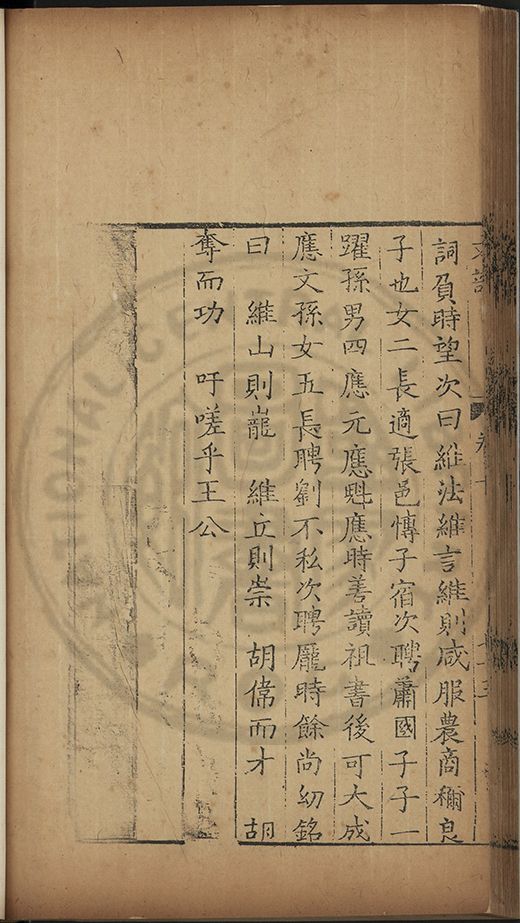 詞負時望次曰維法維言維則咸服農商穪良
子也女二長適張邑愽子宿次聘蕭國子子一
躍孫男四應元應魁應時善讀祖書後可大成
應文孫女五長聘劉不私次聘龎時餘尚幼銘
曰　維山則巃　維丘則崇　胡偉而才　胡
奪而功　吁嗟乎王公